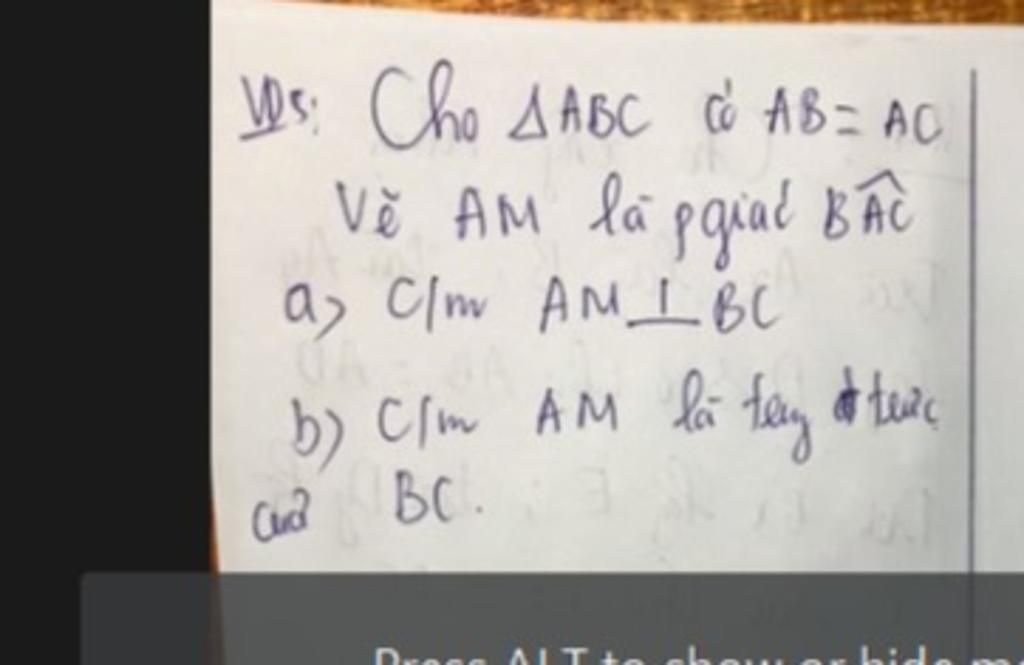 VD5: Cho ΔABC có AB = AC
Vẽ AM là pgiác BÂC
a) C/m AM ⊥ BC
b) C/m AM là trung trực
của BC.
Press ALT to show or hide m